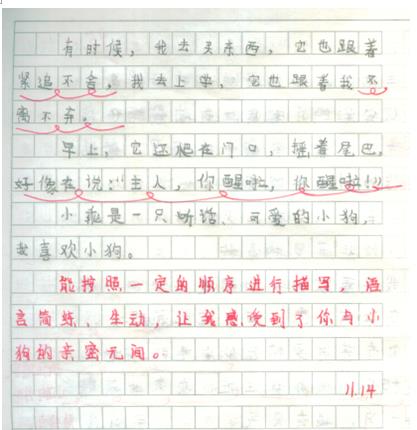 有时候，我去买东西，它也跟着
紧追不舍，我去上学，它也跟着我不
离不弃。
早上，它还爬在门口，摇着尾巴，
好像在说："主人，你醒啦，你醒啦！"
小乖是一只听话、可爱的小狗，
我喜欢小狗。
能按照一定的顺序进行描写，语
言简练、生动，让我感受到了你与小
狗的亲密无间。
11.14